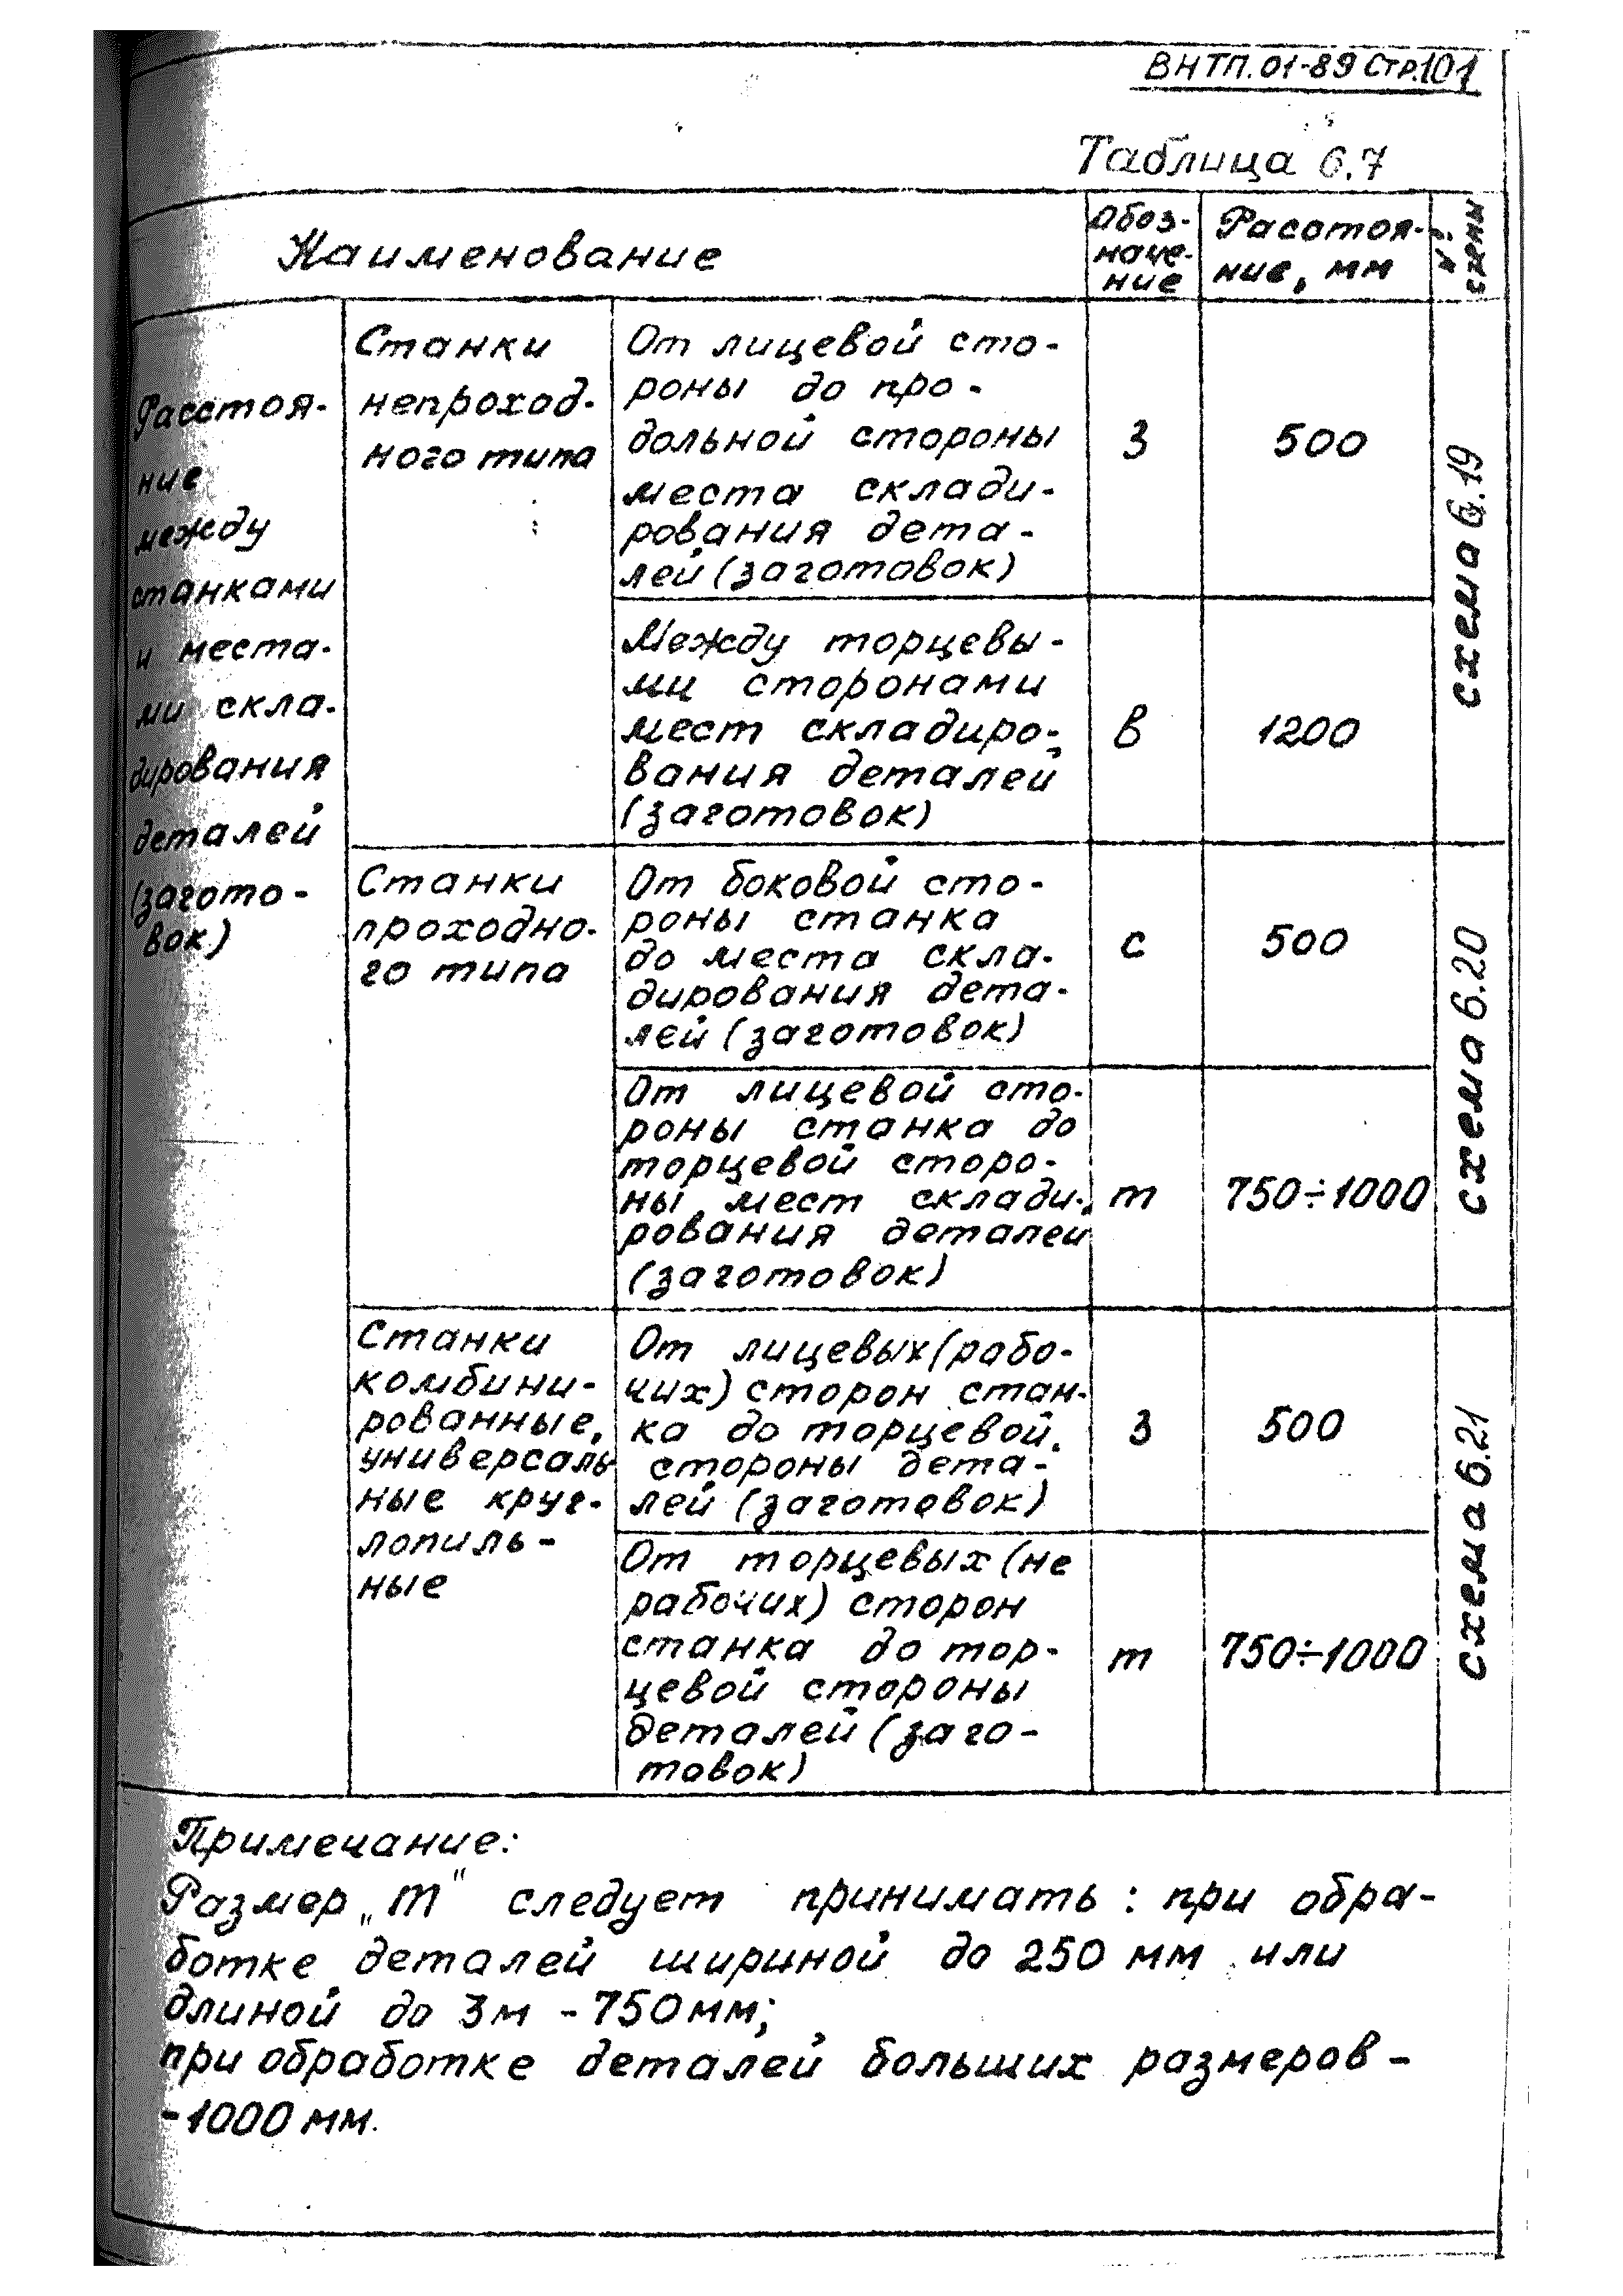 ВНТП.01-89 Стр.101
Таблица 6.7
Наименование
Обоз-
наче-
ние
Расстоя-
ние, мм
№
схемы
Расстоя-
ние
между
станками
и места-
ми скла-
дирования
деталей
(загото-
вок)
Станки
непроход-
ного типа
От лицевой сто-
роны до про-
дольной стороны
места склади-
рования дета-
лей (заготовок)
З
500
схема 6.19
Между торцевы-
ми сторонами
мест складиро-
вания деталей
(заготовок)
в
1200
Станки
проходно-
го типа
От боковой сто-
роны станка
до места скла-
дирования дета-
лей (заготовок)
с
500
схема 6.20
От лицевой сто-
роны станка до
торцевой сторо-
ны мест склади-
рования деталей
(заготовок)
т
750÷1000
Станки
комбини-
рованные,
универсаль
ные круг-
лопиль-
ные
От лицевых (рабо-
чих) сторон стан-
ка до торцевой
стороны дета-
лей (заготовок)
З
500
схема 6.21
От торцевых (не
рабочих) сторон
станка до тор-
цевой стороны
деталей (заго-
товок)
т
750÷1000
Примечание:
Размер „т" следует принимать: при обра-
ботке деталей шириной до 250 мм или
длиной до 3м - 750мм;
при обработке деталей больших размеров -
-1000 мм.